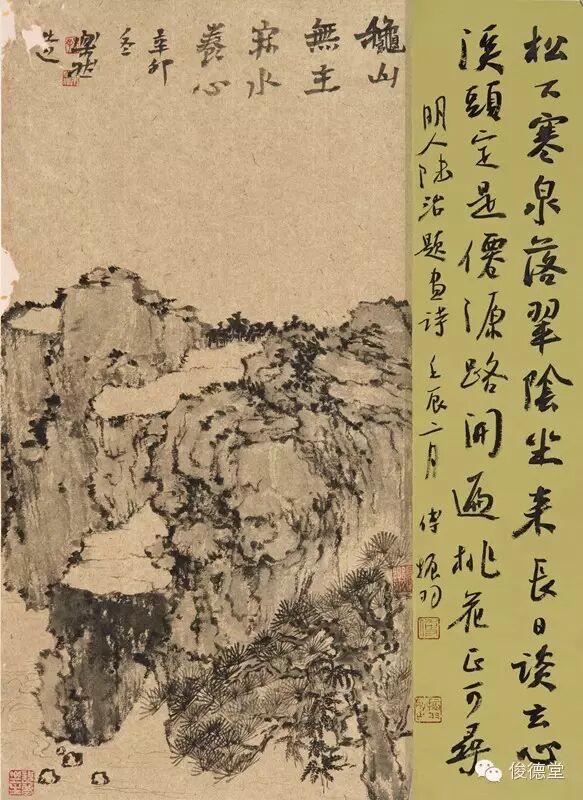 松下寒泉落翠陰坐来長日談玄心
溪頭定是僊源路開遍桃花正可尋
明人陆治題畫詩 壬辰二月 傅振羽
龝山
無主
水
養心
辛卯
冬
俊德堂